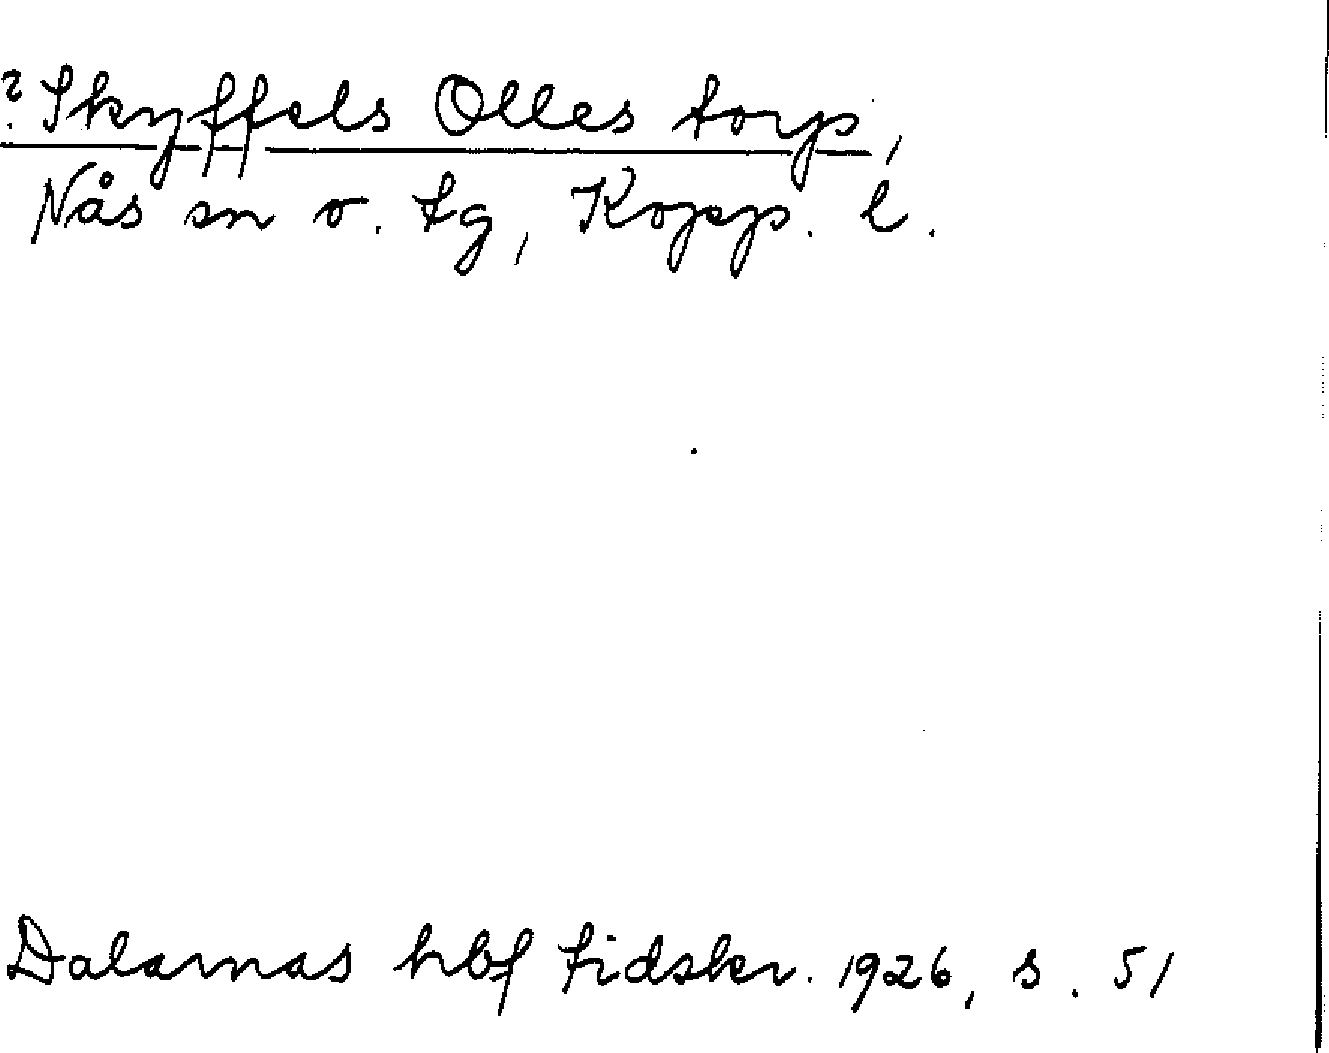 ? Skyffels Olles torp,
Nås sn o. tg, Kopp. l.
Dalarnas hbf tidskr. 1926, s. 51